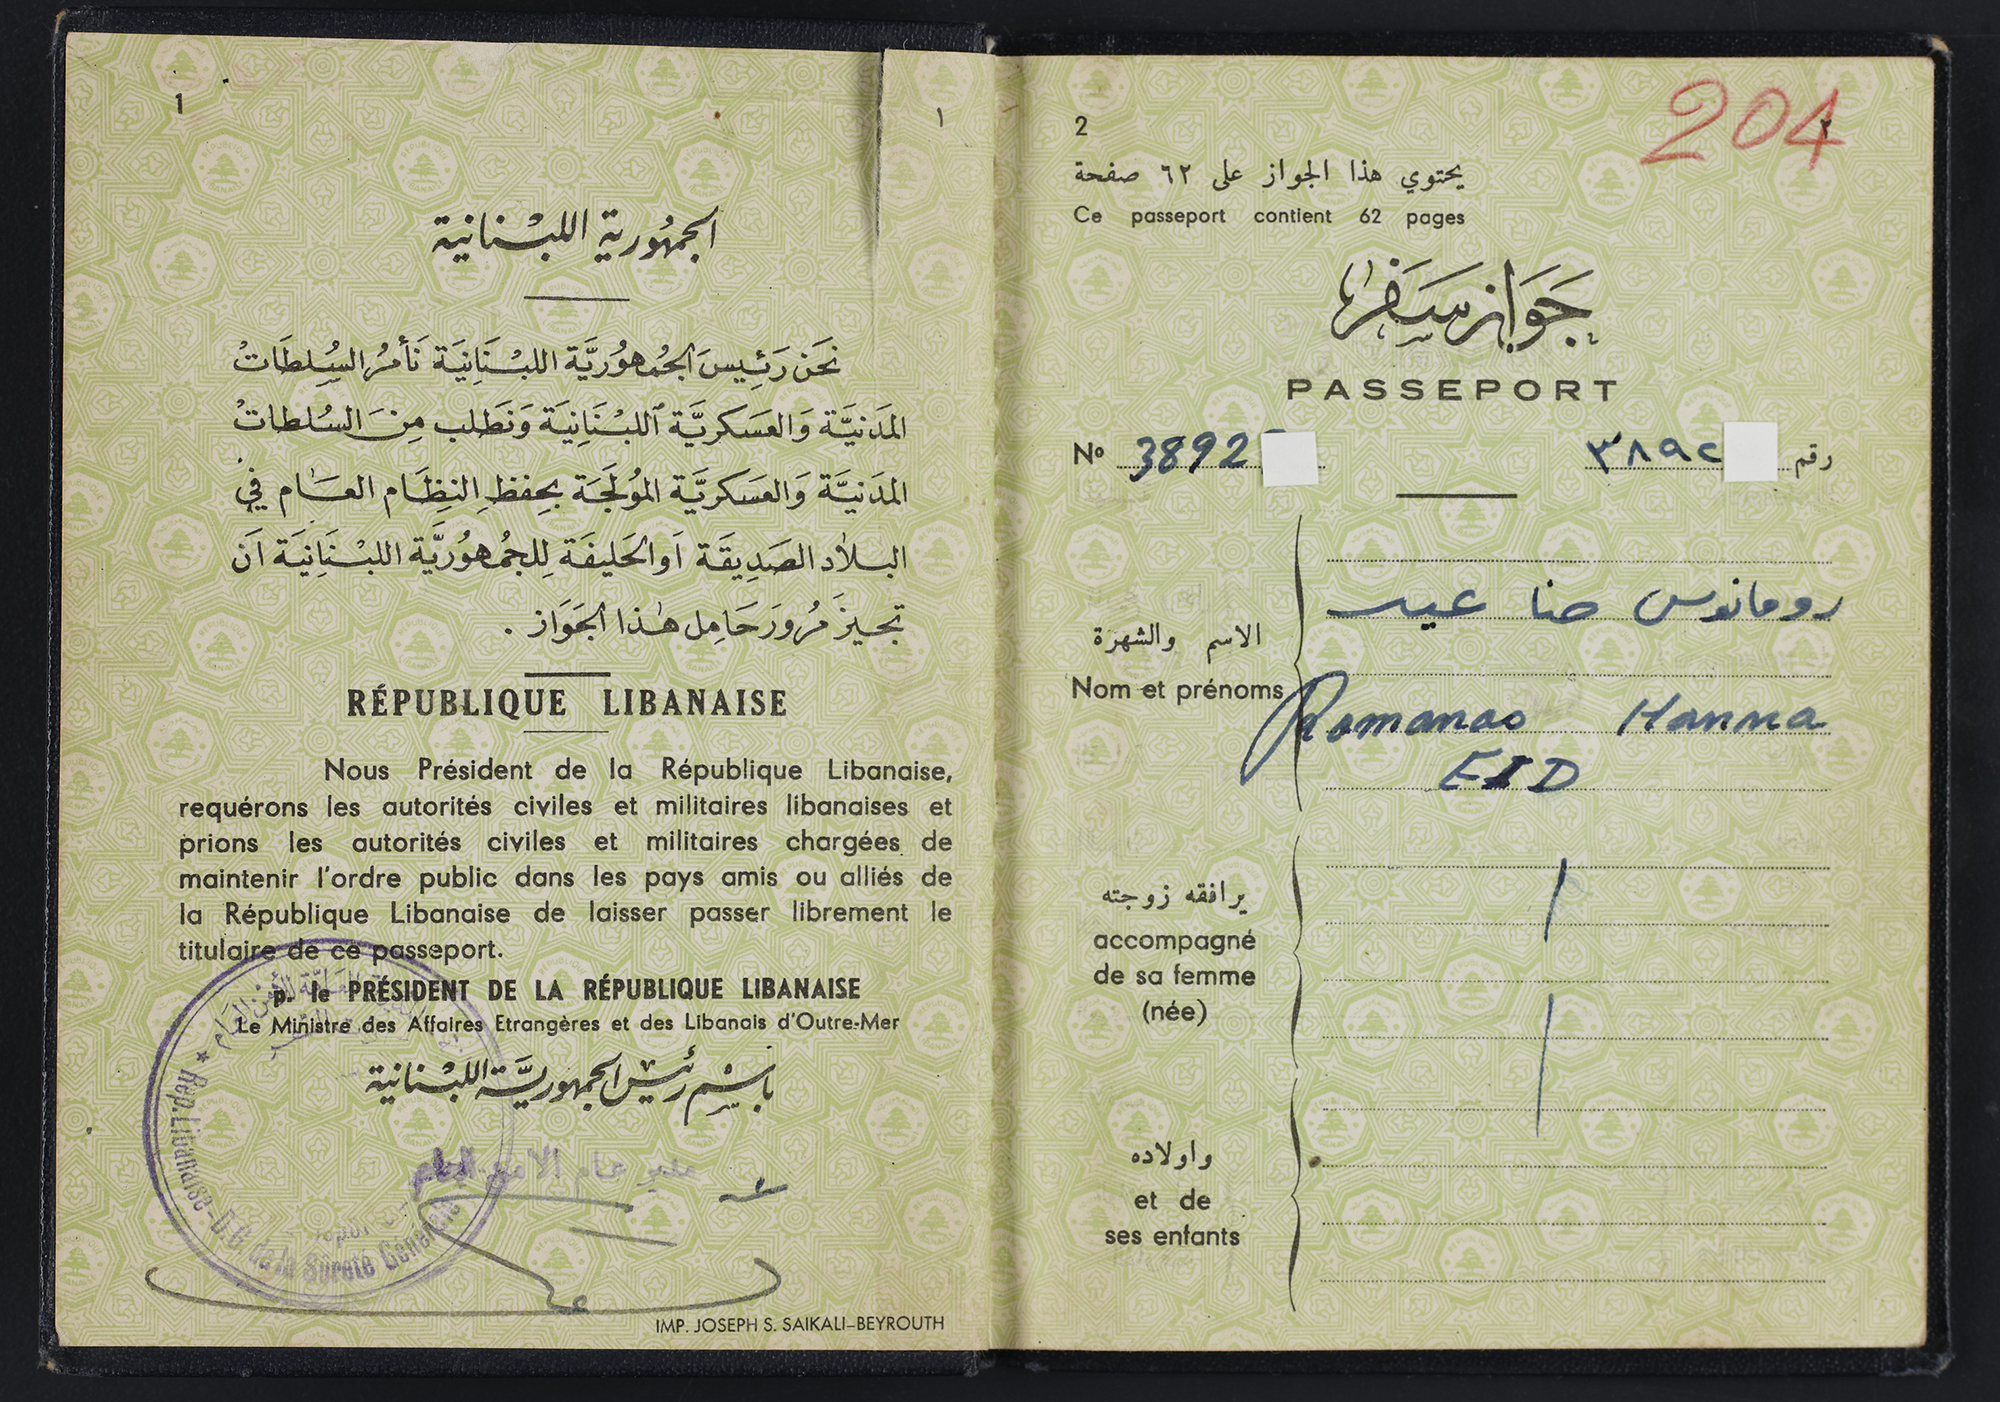 1
١
الجمهورية اللبنانية
نَحْنُ رَئِيسَ الجُمهوُريَّة اللبْنَانِيَة نَأمُر السُلطَاتْ
المَدَنيَّة وَالعَسَكريَّة اللبْنَانِيَة وَنَطلب مِنَ السُلطاتْ
المَدَنيَّة وَالعَسكريَّة المؤلَجَة بِحِفظِ النِظَام العَام في
البلاد الصَدِيقَة اَو الحَليفَة لِلجُمهوُريَّة اللبْنَانِيَة اَن
تجيزَ مُرورَ حَامِل هٰذا الجَوَاز .
RÉPUBLIQUE LIBANAISE
Nous Président de la République Libanaise,
requérons les autorités civiles et militaires libanaises et
prions les autorités civiles et militaires chargées de
maintenir l'ordre public dans les pays amis ou alliés de
la République Libanaise de laisser passer librement le
titulaire de ce passeport.
p. le PRÉSIDENT DE LA RÉPUBLIQUE LIBANAISE
Le Ministre des Affaires Etrangères et des Libanais d'Outre-Mer
باسْم رئيس الجمهوريَّة اللبْنانية
مدير عام الامن العام
Rep. Libanaise - D.G. de la Sûreté Générale
IMP. JOSEPH S. SAIKALI-BEYROUTH
2
٢
204
يحتوي هذا الجواز على ٦٢ صفحة
Ce passeport contient 62 pages
جَوَاز سَفَر
PASSEPORT
No 3892
رقم ٣٨٩٢
رومانوس حنا عيد
الاسم والشهرة
Nom et prénoms
Romanos Hanna
EID
يرافقه زوجته
accompagné
de sa femme
(née)
واولاده
et de
ses enfants